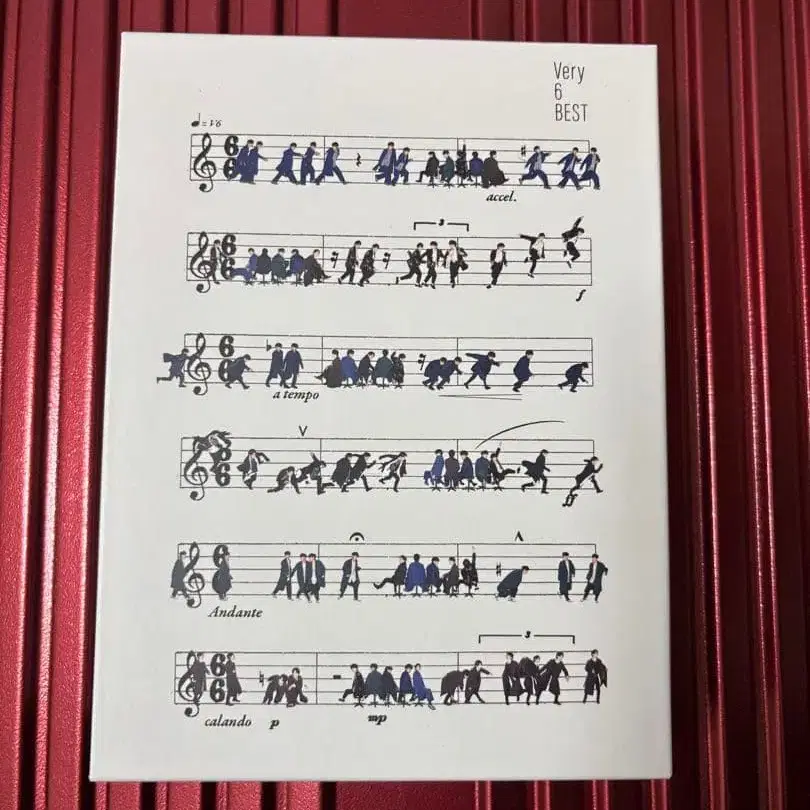 Very
6
BEST
♩=V6
6
6
accel.
6
6
3
f
6
6
a tempo
6
6
V
ff
6
6
Andante
6
6
3
calando p mp